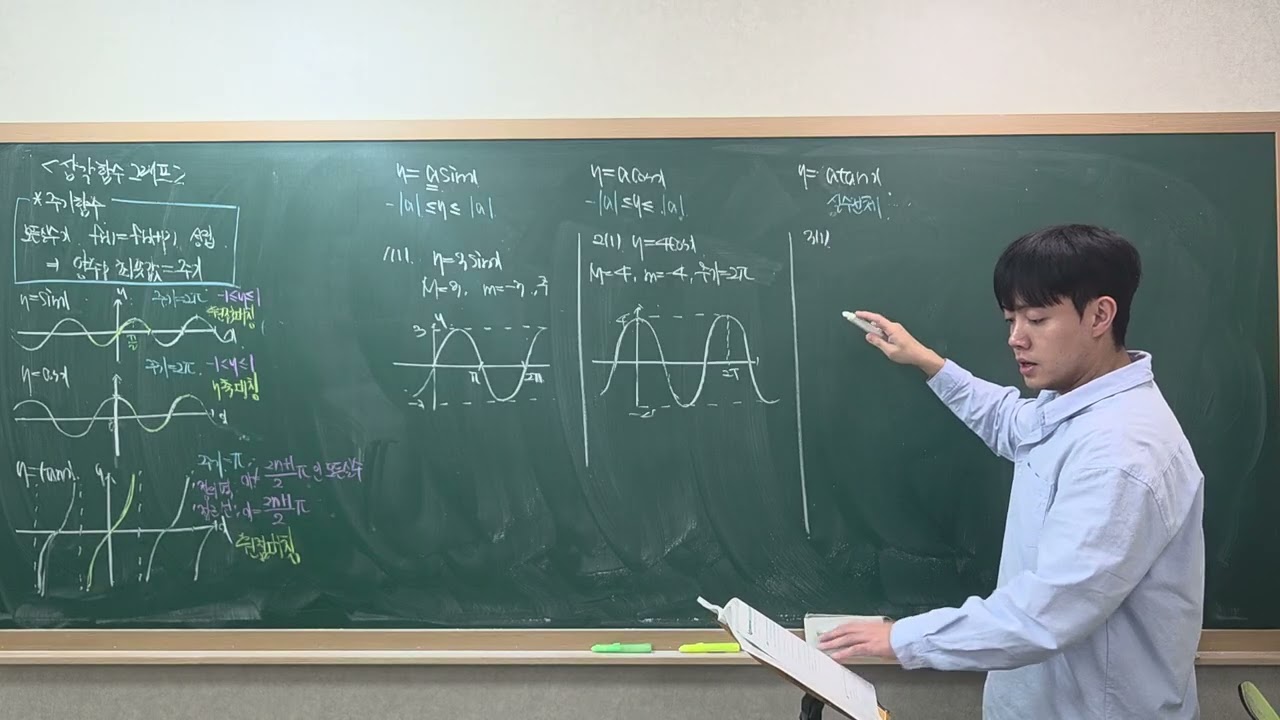 <삼각함수 그래프>
*주기함수
모든실수x f(x)=f(x+p) 성립
⇒ 양수p 최솟값=주기
y=sinx
y
주기=2π
-1≤y≤1
원점대칭
x
y=cosx
주기=2π
-1≤y≤1
y축대칭
x
y=tanx
y
주기=π
정의역, x≠ 2n+1/2 π 인 모든실수
점근선, x= 2n+1/2 π
x
원점대칭
y=asinx
-|a|≤y≤|a|
1(1). y=3sinx
M=3, m=-3, 주
y
3
π
2π
-3
y=acosx
-|a|≤y≤|a|
2(1) y=4cosx
M=4, m=-4, 주기=2π
4
2π
y=atanx
실수전체
3(1)